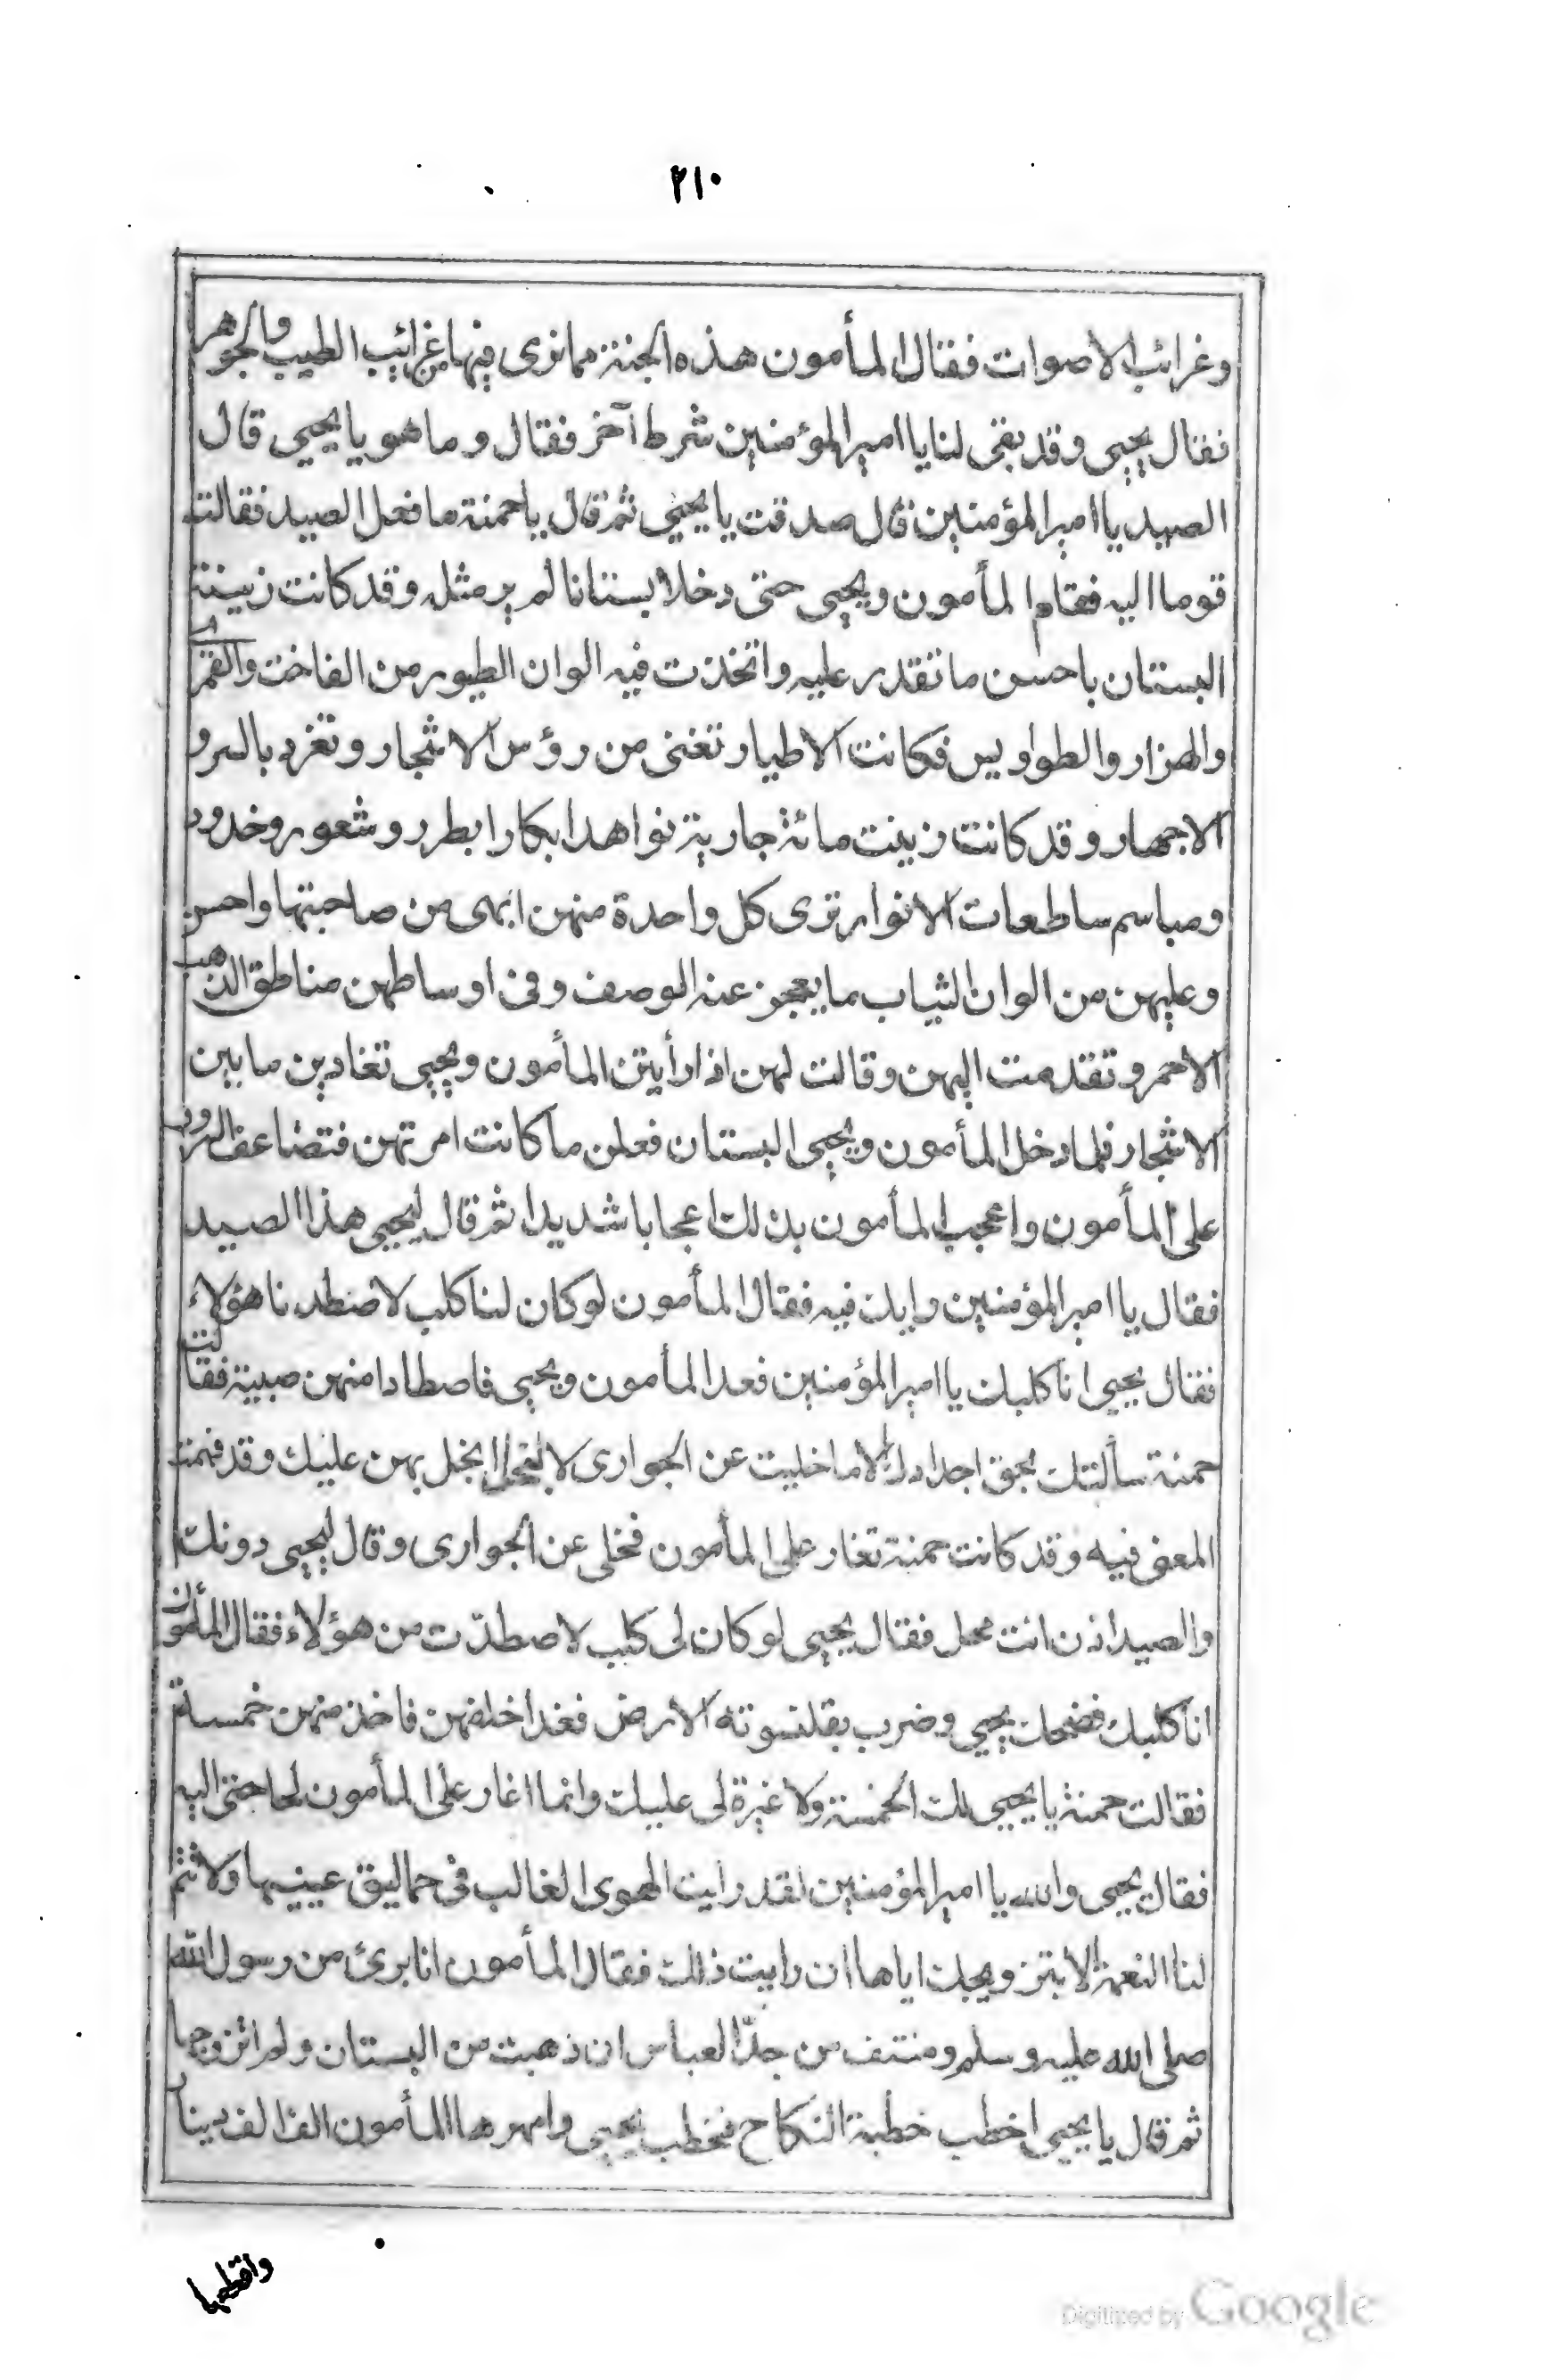 ٢١٠
وغرائب الاصوات فقال المأمون هذه الجنة مما نرى فيها من غرائب الطيب والجوهر
فقال يحيى وقد بقى لنا يا امير المؤمنين شرط آخر فقال وما هو يا يحيى قال
الصيد يا امير المؤمنين قال صدقت يا يحيى ثم قال يا حمنة ما فعل الصيد فقالت
قوما اليه فقام المأمون ويحيى حتى دخلا بستانا لم ير مثله وقد كانت زينت
البستان باحسن ما تقدر عليه واتخذت فيه الوان الطيور من الفاخت والقمرى
والهزار والطواويس فكانت الاطيار تغنى من رؤس الاشجار وتغرد بالسر و
الاجهار وقد كانت زينت مائة جارية نواهد ابكارا بطرر وشعور وخدود
ومباسم ساطعات الانوار ترى كل واحدة منهن ابهى من صاحبتها واحسن
وعليهن من الوان الثياب ما يعجز عنه الوصف وفى اوساطهن مناطق الذهب
الاحمر وتقدمت اليهن وقالت لهن اذا رأيتن المأمون ويحيى تغادين ما بين
الاشجار فلما دخل المأمون ويحيى البستان فعلن ما كانت امرتهن فتضاعف السرور
على المأمون واعجب المأمون بذلك اعجابا شديدا ثم قال ليحيى هذا الصيد
فقال يا امير المؤمنين رايك فيه فقال المأمون لو كان لنا كلب لاصطدنا هؤلاء
فقال يحيى انا كلبك يا امير المؤمنين فعدا المأمون ويحيى فاصطادا منهن صبية فقالت
حمنة سألتك بحق اجدادك الا ما خليت عن الجوارى لا ابخل بهن عليك وقد فهمت
المعنى فيه وقد كانت حمنة تغار على المأمون فخلى عن الجوارى وقال ليحيى دونك
والصيد اذن انت محل فقال يحيى لو كان لى كلب لاصطدّت من هؤلاء فقال المأمون
انا كلبك فضحك يحيى وضرب بقلنسوته الارض فغدا خلفهن فاخذ منهن خمسة
فقالت حمنة يا يحيى لك الخمسة ولا غيرة لى عليك وانما اغار على المأمون لحاجتى اليه
فقال يحيى والله يا امير المؤمنين لقد رايت الهوى الغالب فى حماليق عينيها ولا تتم
لنا النعمة الا بتزويجك اياها ان رايت ذلك فقال المأمون انا برئ من رسول الله
صلى الله عليه وسلم ومنتف من جدّ العباس ان ذهبت من البستان ولم اتزوجها
ثم قال يا يحيى اخطب خطبة النكاح فخطب يحيى وامهرها المأمون الف الف دينار
واقطعها
Digitized by Google